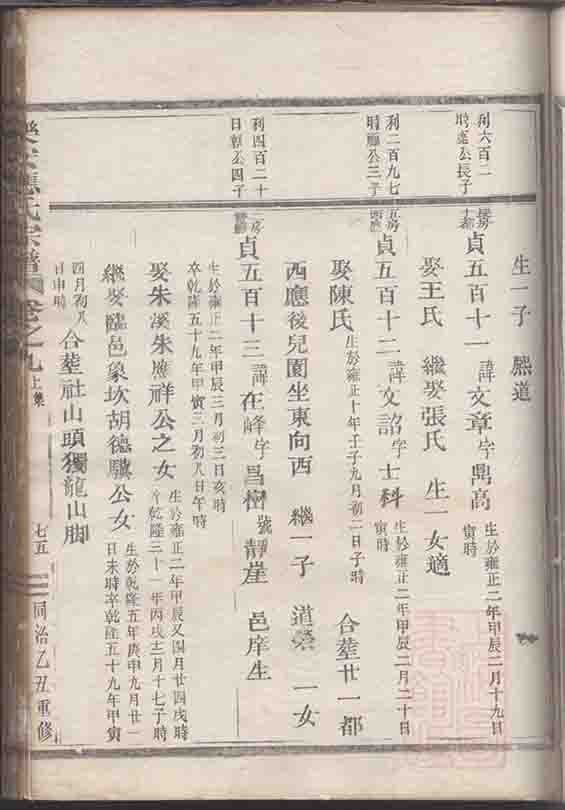 生一子 熙道
利六百二
時 公長子
貞五百十一 諱文章字鼎高 生於雍正二年甲辰二月十九日
寅時
娶王氏 繼娶張氏 生一女適
利二百九七
時 公三子
貞五百十二 諱文詔字士科 生於雍正二年甲辰二月二十日
寅時
娶陳氏 生於雍正十年壬子九月初二日子時 合塟廿一都
西應後兒園坐東向西 繼一子 道榮 一女
利四百二十
日 公四子
貞五百十三 諱在峰字昌 號靜崖 邑庠生
生於雍正二年甲辰三月初三日亥時
卒乾隆五十九年甲寅三月初八日午時
娶朱溪朱應祥公之女 生於雍正二年甲辰又四月廿四戌時
卒乾隆三十一年丙戌十二月十七子時
繼娶臨邑象坎胡德驥公女 生於乾隆五年庚申九月廿一
日未時卒乾隆五十九年甲寅
四月初八
日申時 合塟社山頭獨龍山脚
氏宗譜 卷之九 上集 七五 同治乙丑重修